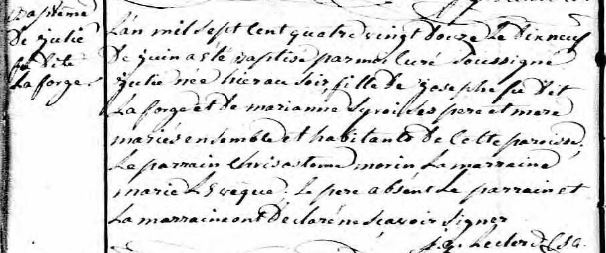 Baptême
De julie
fu dite
Laforge
L'an mil sept cent quatre vingt douze Le dixneuf
De juin a été Baptisé par moi Curé soussigné
julie née hier au soir, fille de josephe fu dit
Laforge et de marianne Syroi Les pere et mere
mariés ensemble et habitants de Cette paroisse.
Le parrain Chrisostome morin La marraine
marie Levêque. Le pere absent Le parrain et
La marraine ont Declaré ne sçavoir signer
Leclerc